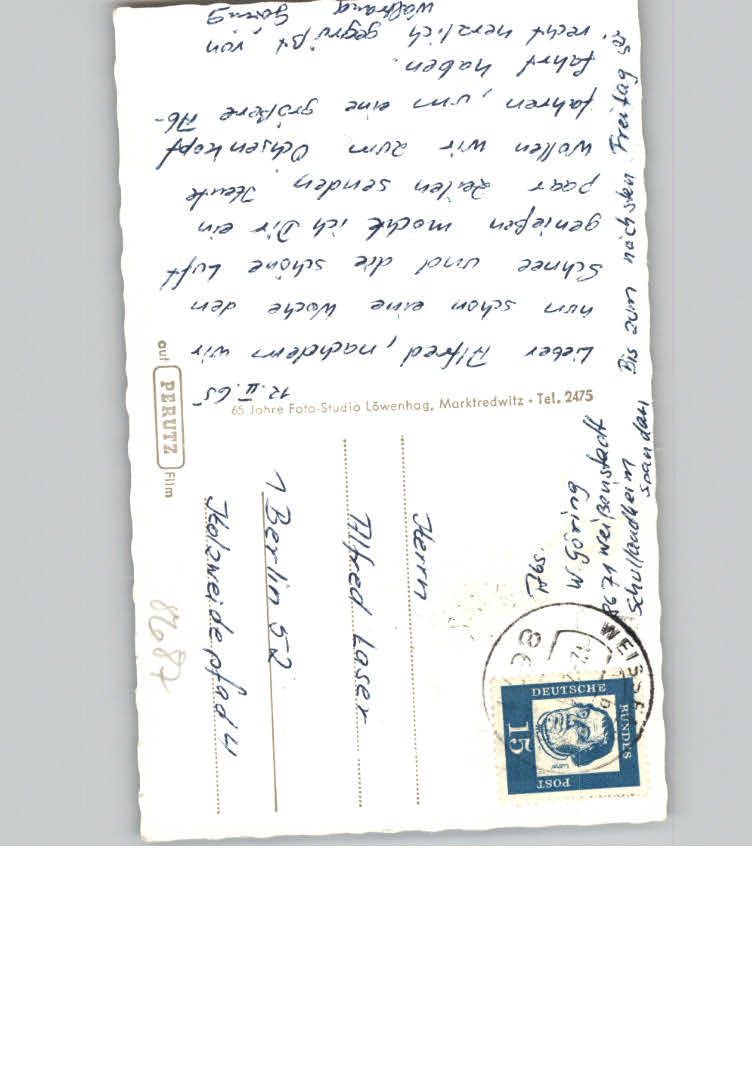 12.II.65
Lieber Alfred, nachdem wir
nun schon eine Woche den
Schnee und die schöne Luft
genießen möchte ich Dir ein
paar Zeilen senden. Heute
wollen wir zum Ochsenkopf
fahren, um eine größere Ab-
fahrt haben.
recht herzlich gegrüßt, von
Wolfgang
Göring
Bis zum nächsten Freitag
65 Jahre Foto-Studio Löwenhag, Marktredwitz · Tel. 2475
auf
PERUTZ
Film
Abs.
W. Göring
8671 Weißenstadt
Schullandheim
Spandau
Herrn
Alfred Laser
1 Berlin 52
Holzweidepfad 41
8687
DEUTSCHE
BUNDES
POST
15
Luther
WEISSE